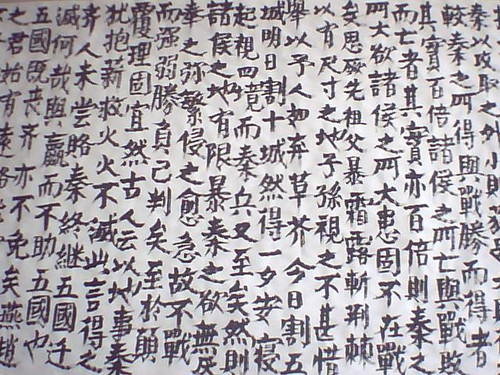 秦以攻取之外小則
較秦之所得與戰勝而得者
其實百倍諸侯之所亡與戰敗
而亡者其實亦百倍則秦之
所大欲諸侯之所大患固不在戰
矣思厥先祖父暴霜露斬荊棘
以有尺寸之地子孫視之不甚惜
舉以予人如弃草芥今日割五
城明日割十城然得一夕安寢
起視四竟而秦兵又至矣然則
諸侯之地有限暴秦之欲無厌
奉之弥繁侵之愈急故不戰
而强弱勝負已判矣至於顛
覆理固宜然古人云以地事秦
犹抱薪救火火不滅此言得之
齐人未尝賂秦終継五國迁
滅何哉與嬴而不助五國也
五國既喪齐亦不免矣燕趙
之君始有遠略